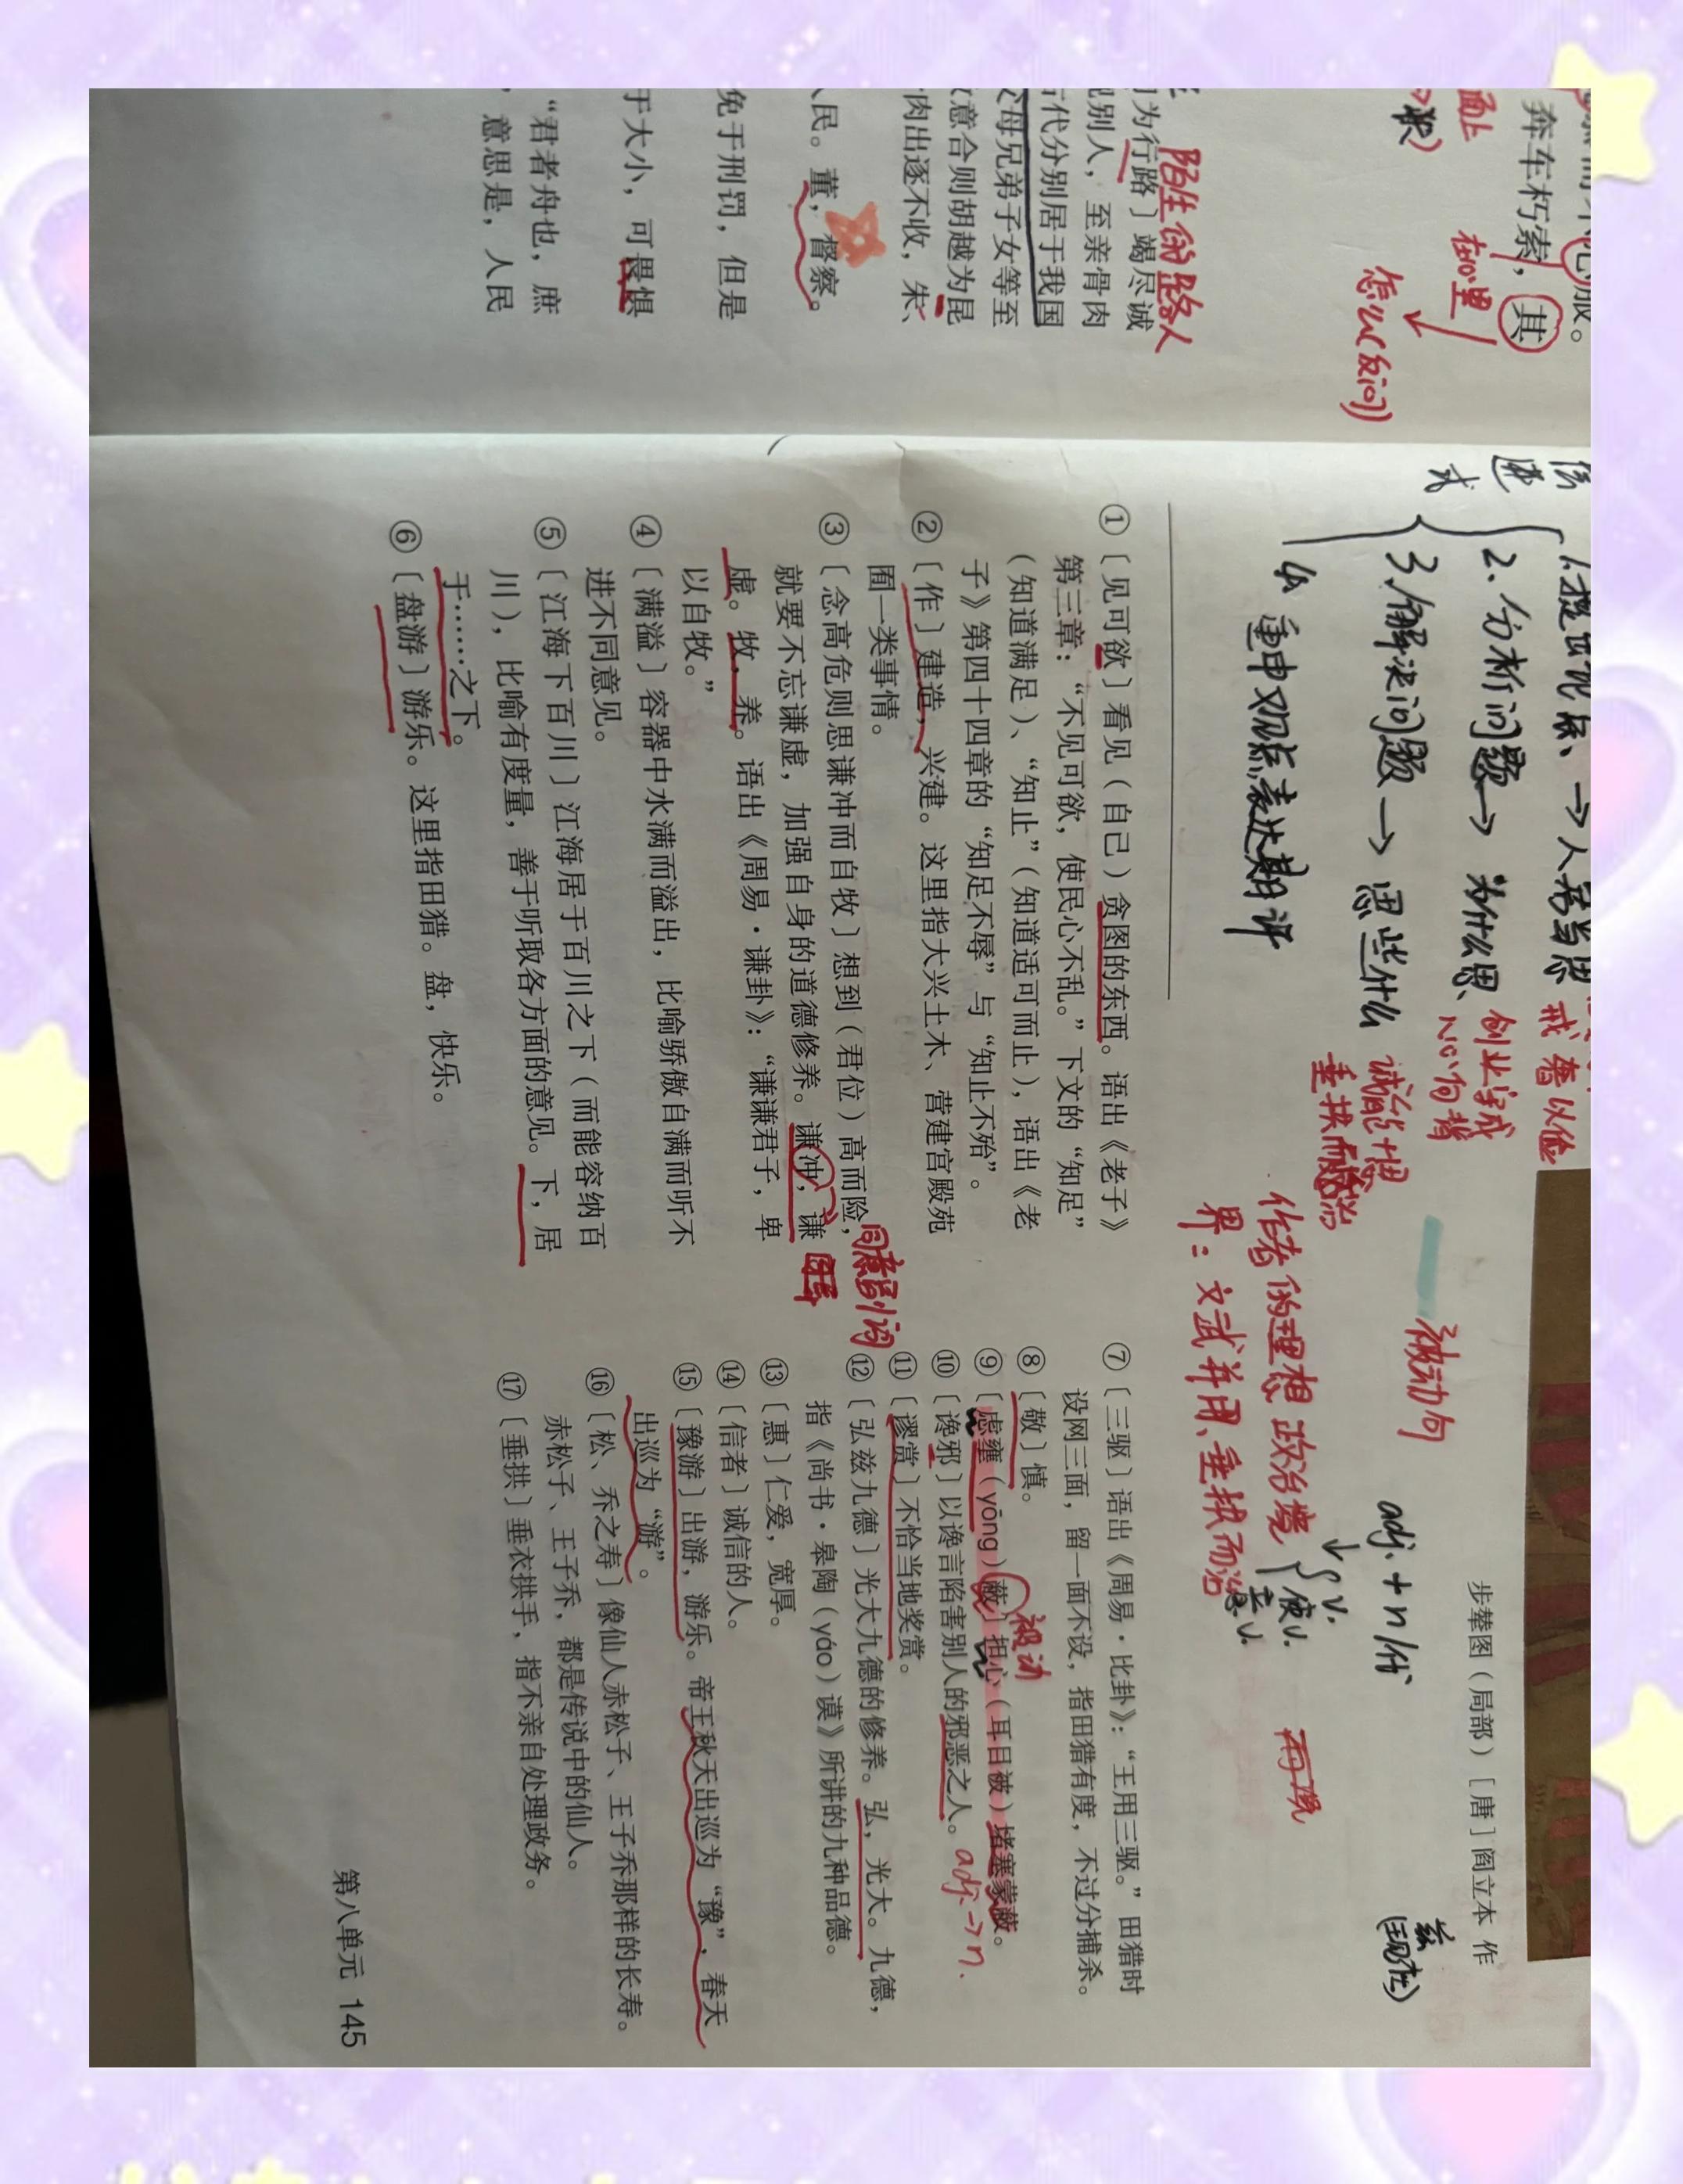 奔车朽索，其
在哪里
怎么(反问)
陌生的路人
为行路〕竭尽诚
别人，至亲骨肉
代分别居于我国
父母兄弟子女等至
意合则胡越为昆
肉出逐不收，朱、
人民。董，督察。
免于刑罚，但是
于大小，可畏惧
“君者舟也，庶
，意思是，人民
递进式
2.分析问题→为什么思、创业守成
人心向背
戒奢以俭
3.解决问题→思些什么 诚能十思
垂拱而治
4 重申观点表达期许
被动句
adj.+n/代
v.
使v.
意v.
作者的理想政治境
界：文武并用、垂拱而治
步辇图（局部）［唐］阎立本 作
兹
(现在)
①〔见可欲〕看见（自己）贪图的东西。语出《老子》
第三章：“不见可欲，使民心不乱。”下文的“知足”
（知道满足）、“知止”（知道适可而止），语出《老
子》第四十四章的“知足不辱”与“知止不殆”。
②〔作〕建造，兴建。这里指大兴土木、营建宫殿苑
囿一类事情。
③〔念高危则思谦冲而自牧〕想到（君位）高而险，
就要不忘谦虚，加强自身的道德修养。谦冲，谦
虚。牧，养。语出《周易·谦卦》：“谦谦君子，卑
以自牧。”
④〔满溢〕容器中水满而溢出，比喻骄傲自满而听不
进不同意见。
⑤〔江海下百川〕江海居于百川之下（而能容纳百
川），比喻有度量，善于听取各方面的意见。下，居
于……之下。
⑥〔盘游〕游乐。这里指田猎。盘，快乐。
⑦〔三驱〕语出《周易·比卦》：“王用三驱。”田猎时
设网三面，留一面不设，指田猎有度，不过分捕杀。
⑧〔敬〕慎。
被动
⑨〔虑壅（yōng）蔽〕担心（耳目被）堵塞蒙蔽。
⑩〔谗邪〕以谗言陷害别人的邪恶之人。adj.→n.
⑪〔谬赏〕不恰当地奖赏。
同意副词
⑫〔弘兹九德〕光大九德的修养。弘，光大。九德，
指《尚书·皋陶（yáo）谟》所讲的九种品德。
⑬〔惠〕仁爱，宽厚。
⑭〔信者〕诚信的人。
⑮〔豫游〕出游，游乐。帝王秋天出巡为“豫”，春天
出巡为“游”。
⑯〔松、乔之寿〕像仙人赤松子、王子乔那样的长寿。
赤松子、王子乔，都是传说中的仙人。
⑰〔垂拱〕垂衣拱手，指不亲自处理政务。
第八单元 145